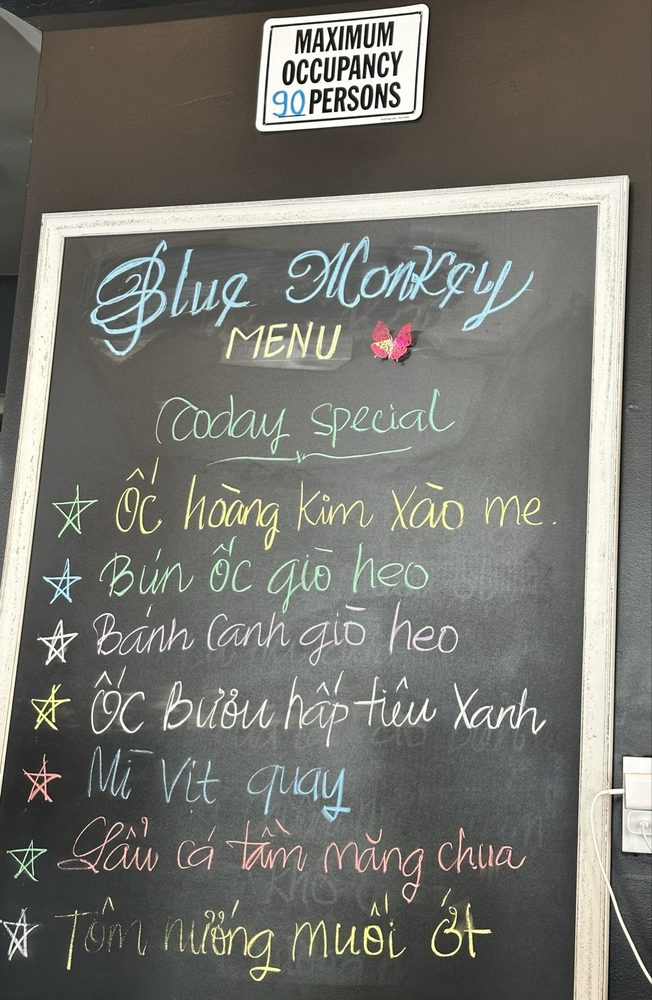 MAXIMUM
OCCUPANCY
90 PERSONS
Blue Monkey
MENU
Today special
Ốc hoàng kim xào me.
Bún ốc giò heo
Bánh canh giò heo
Ốc Bươu hấp tiêu xanh
Mì Vịt quay
Lẩu cá tầm măng chua
Tôm nướng muối ớt